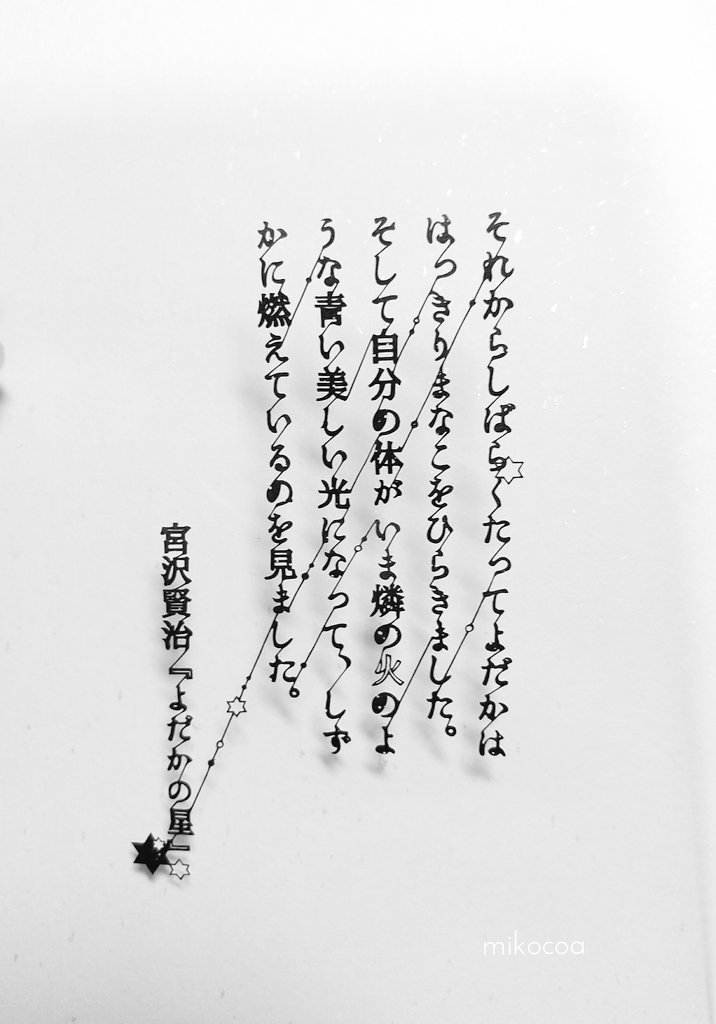 それからしばらくたってよだかは
はっきりまなこをひらきました。
そして自分の体がいま燐の火のよ
うな青い美しい光になって、しず
かに燃えているのを見ました。
宮沢賢治『よだかの星』
mikocoa